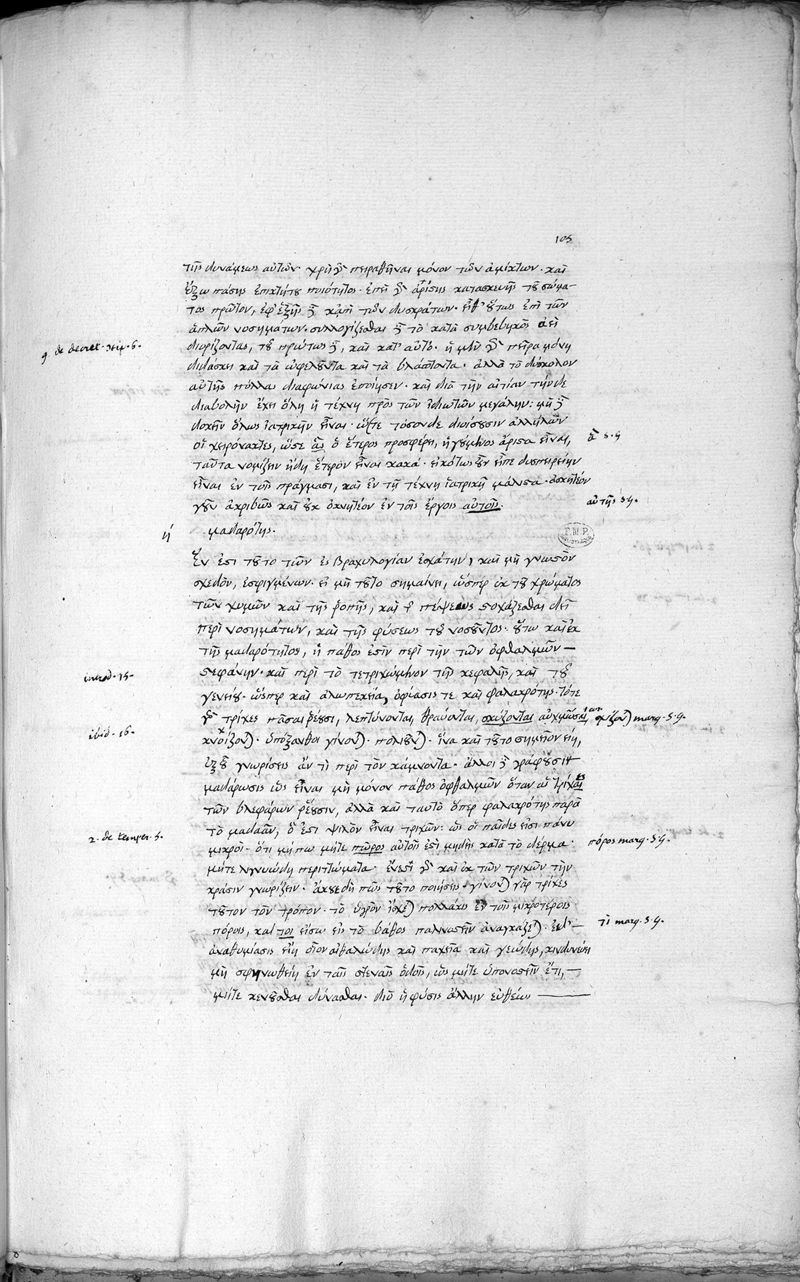 105
τῆς δυνάμεως αὐτῶν· χρὴ γὰρ πειραθῆναι μόνον τῶν ἀμίκτων· καὶ
ἔξω πάσης ἐπικτήτου ποιότητος· ἐπεὶ γὰρ ἀρίστης κατασκευῆς τοῦ σώμα-
τος πρῶτον, ἐφ' ἑξῆς δὲ κἀπὶ τῶν δυσκράτων· εἶθ' οὕτως ἐπὶ τῶν
ἁπλῶν νοσημάτων· συλλογίζεσθαι δὲ τὸ κατὰ συμβεβηκὸς ἀεὶ
9 de decret. Hip. 6.
διορίζοντας, τοῦ πρώτως δὲ, καὶ κατ' αὐτὸ· ἡ μὲν γὰρ πεῖρα μόνη
διδάσκει καὶ τὰ ὠφελοῦντα καὶ τὰ βλάπτοντα· ἀλλὰ τὸ δύσκολον
αὐτῆς πολλὰς διαφωνίας ἐποίησεν· καὶ διὰ τὴν αἰτίαν τήνδε
διαβολὴν ἔχει ὅλη ἡ τέχνη πρὸς τῶν ἰδιωτῶν μεγάλην· μὴ δὲ
δοκεῖν ὅλως ἰατρικὴν εἶναι· ὥστε τοσόνδε διοίσουσιν ἀλλήλων
οἱ χειρώνακτες, ὥστε ἃς ὁ ἕτερος προσφέρει, ἡγούμενος ἄριστα εἶναι,
ταῦτα νομίζειν ἤδη ἕτερον εἶναι κακά· εἰκότως οὖν εἶπε δυσπειρείην
εἶναι ἐν τοῖς πράγμασι, καὶ ἐν τῇ τέχνῃ ἰατρικῇ μάλιστα· ἀσκητέον
γοῦν ἀκριβῶς καὶ οὐκ ὀκνητέον ἐν τοῖς ἔργοις αὐτοῖς.
αὐτῆς 59.
ή
μαδαρότης.
Ἕν ἐστι τοῦτο τῶν ἐς βραχυλογίαν ἐσχάτην, καὶ μὴ γνωστὸν
σχεδὸν, ἐσφιγμένων· εἰ μὴ τοῦτο σημαίνει, ὥσπερ ἐκ τοῦ χρώματος
τῶν χυμῶν καὶ τῆς ῥοπῆς, καὶ τῆς πέψεως στοχάζεσθαι δεῖ
περὶ νοσημάτων, καὶ τῆς φύσεως τοῦ νοσοῦντος· οὕτω καὶ ἐκ
τῆς μαδαρότητος, ἣ πάθος ἐστὶν περὶ τὴν τῶν ὀφθαλμῶν
introd. 15.
στεφάνην· καὶ περὶ τὸ τετριχωμένον τῆς κεφαλῆς, καὶ τοῦ
γενείου· ὥσπερ καὶ ἀλωπεκεία, ὀφίασίς τε καὶ φαλακρότης· τότε
γὰρ τρίχες πᾶσαι ῥέουσι, λεπτύνονται, θραύονται, σχίζονται αὐχμώσεις
ibid. 16.
ὑπόξανθοι γίνονται· πολιοῦνται· ἵνα καὶ τοῦτο σημεῖον εἴη,
ἐξ οὗ γνωρίσεις ἄν τι περὶ τὸν κάμνοντα· ἄλλοι δὲ γράφουσι
μαδάρωσις ὡς εἶναι μὴ μόνον πάθος ὀφθαλμῶν ὅταν αἱ τρίχες
τῶν βλεφάρων ῥέουσιν, ἀλλὰ καὶ ταυτὸ ὅπερ φαλακρότης παρὰ
2. de temper. 5.
τὸ μαδαᾶν, ὅ ἐστι ψιλὸν εἶναι τριχῶν· ὡς οἱ παῖδες εἰσι πάνυ
μικροὶ· ὅτι μή πω μήτε πῶρος αὐτοῖς ἐστὶ μηδεὶς κατὰ τὸ δέρμα·
πόρος marg. 59.
μήτε λιγνυώδη περιττώματα· ἔνεστι γὰρ καὶ ἐκ τῶν τριχῶν τὴν
κρᾶσιν γνωρίζειν· ἄκουε δὴ πῶς τοῦτο ποιήσεις· γίνονται γὰρ τρίχες
τοῦτον τὸν τρόπον· τὸ ὑγρὸν ἴσχεται πολλάκις ἐν τοῖς μικροτέροις
πόροις, καὶ τοι εἴσω εἰς τὸ βάθος παλινοστεῖν ἀναγκάζεται·
τι marg. 59.
ἀναθυμίασις εἴη οἷον αἰθαλώδης καὶ παχεῖα καὶ γεώδης, κινδυνεύει
μὴ σφηνωθείη ἐν ταῖς στεναῖς ὁδοῖς, ὡς μήτε ὑπονοστεῖν ἔτι,
μήτε κενοῦσθαι δύνασθαι· διὸ ἡ φύσις ἄλλην εὐθέως